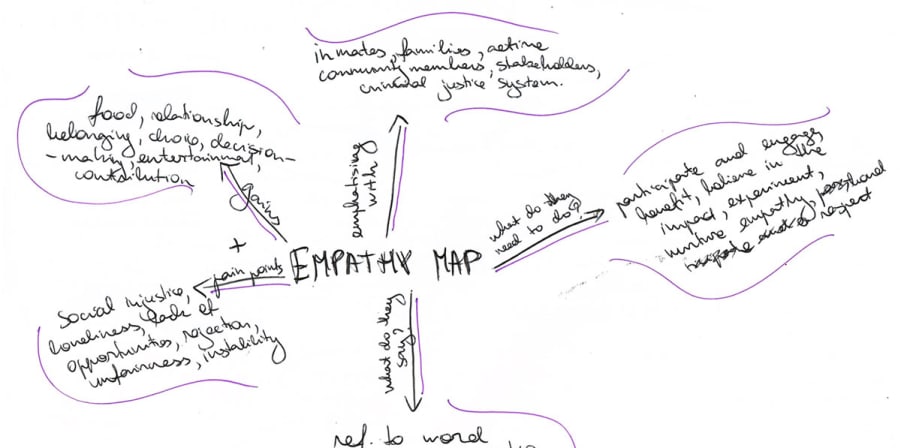 inmates, families, active
community members, stakeholders,
criminal justice system.
food, relationship,
belonging, choice, decision-
-making, entertainment,
contribution
gains
emphatising
with
what do they
need to do?
participate and engage,
benefit, believe in the
impact, experiment,
nurture empathy, personal
respect
+
pain points
EMPATHY MAP
social injustice,
loneliness, lack of
opportunities, rejection,
unfairness, instability
what do they
say?
ref. to word